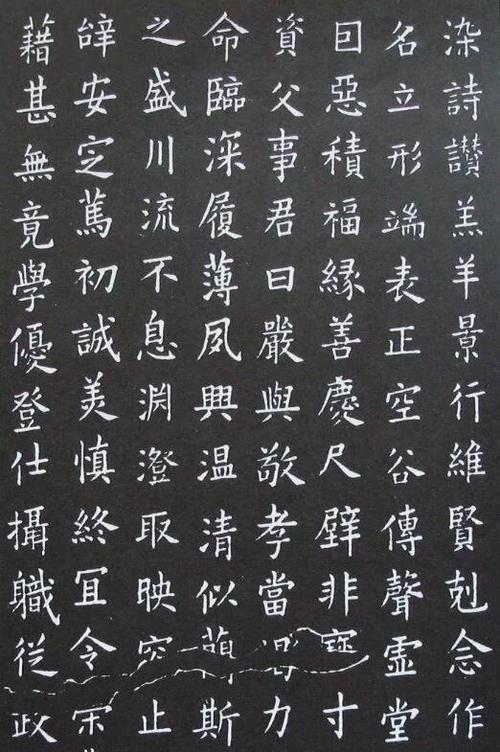 染詩讚羔羊景行維賢剋念作
名立形端表正空谷傳聲虛堂
囙惡積福緣善慶尺璧非寶寸
資父事君曰嚴與敬孝當力
命臨深履薄夙興温清似蘭斯
之盛川流不息渊澄取映容止
辞安定篤初誠美慎終冝令
藉甚無竟學優登仕攝職從政